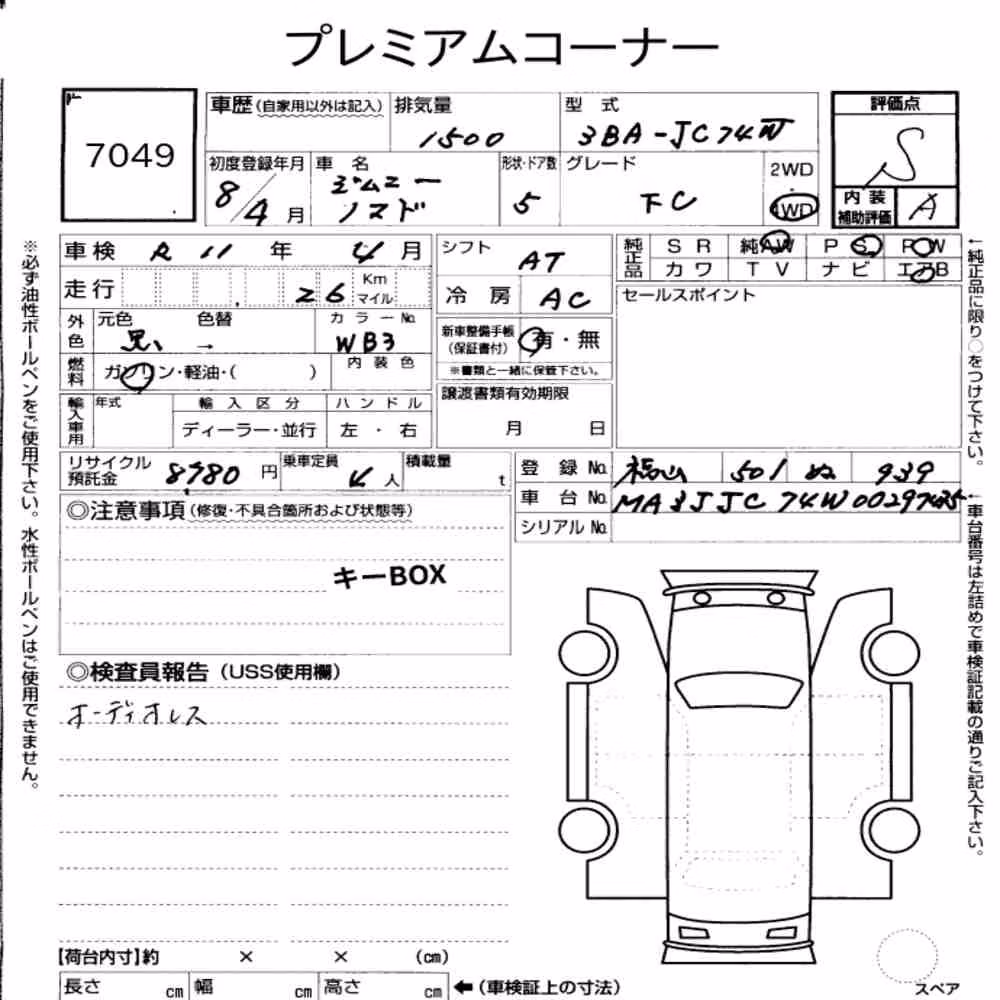 プレミアムコーナー
7049
車歴(自家用以外は記入) 排気量 1500 型式 3BA-JC74W 評価点 S
初度登録年月 8/4月 車名 ジムニー ノマド 形状・ドア数 5 グレード FC 2WD 4WD
内装補助評価 A
※必ず油性ボールペンをご使用下さい。水性ボールペンはご使用できません。
車検 R 11 年 4 月
走行 26 Km マイル
外色 元色 黒 色替 → カラーNo. WB3
燃料 ガソリン・軽油・( ) 内装色
輸入車用 年式 輸入区分 ディーラー・並行 ハンドル 左・右
シフト AT
冷房 AC
新車整備手帳(保証書付) 有・無
※書類と一緒に保管下さい。
譲渡書類有効期限
月 日
純正品 SR 純AW PS PW
カワ TV ナビ エアB
セールスポイント
←純正品に限り○をつけて下さい。
リサイクル預託金 8980 円 乗車定員 4 人 積載量 t
登録No. 福山 501 ぬ 939
車台No.
シリアルNo.
←車台番号は左詰めで車検証記載の通りご記入下さい。
◎注意事項(修復・不具合箇所および状態等)
キーBOX
◎検査員報告(USS使用欄)
オーディオレス
【荷台内寸】約 × × (cm)
長さ cm 幅 cm 高さ cm ←(車検証上の寸法)
スペア